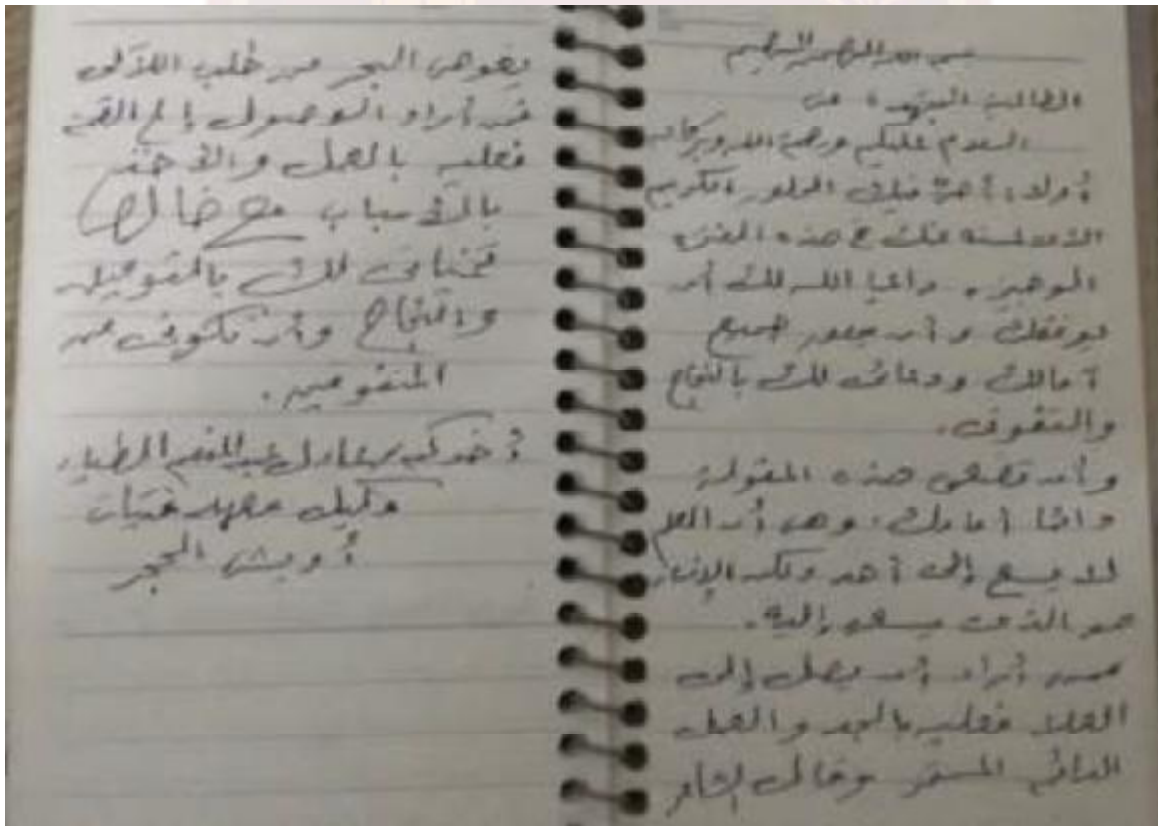 بسم الله الرحمن الرحيم
الطالبة المجتهدة
السلام عليكم ورحمة الله وبركاته
أولا: أحيّ فيك الخلق الكريم
هذه الفترة
الوجيزة. داعيا الله لك أن
يوفقك وأن يحقق جميع
آمالك ودعائى لك بالنجاح
والتفوق.
وأن تضعى هذه المقولة
دائما أمامك. وهى أن العلم
لا يسع إلى أحد ولكن الإنسان
هو الذى يسعى إليه.
فمن أراد أن يصل إلى
العلا فعليه بالجد والعمل
الدائم المستمر وقال الشاعر
يغوص البحر من طلب اللآلى
فمن أراد الوصول إلى القمة
فعليه بالعمل والأخذ
بالأسباب مع خالص
تمنياتى لك بالتوفيق
والنجاح وأن تكونى من
المتفوقين.
عادل عبد المنعم الطيار
وكيل معهد فتيات
أويش الحجر